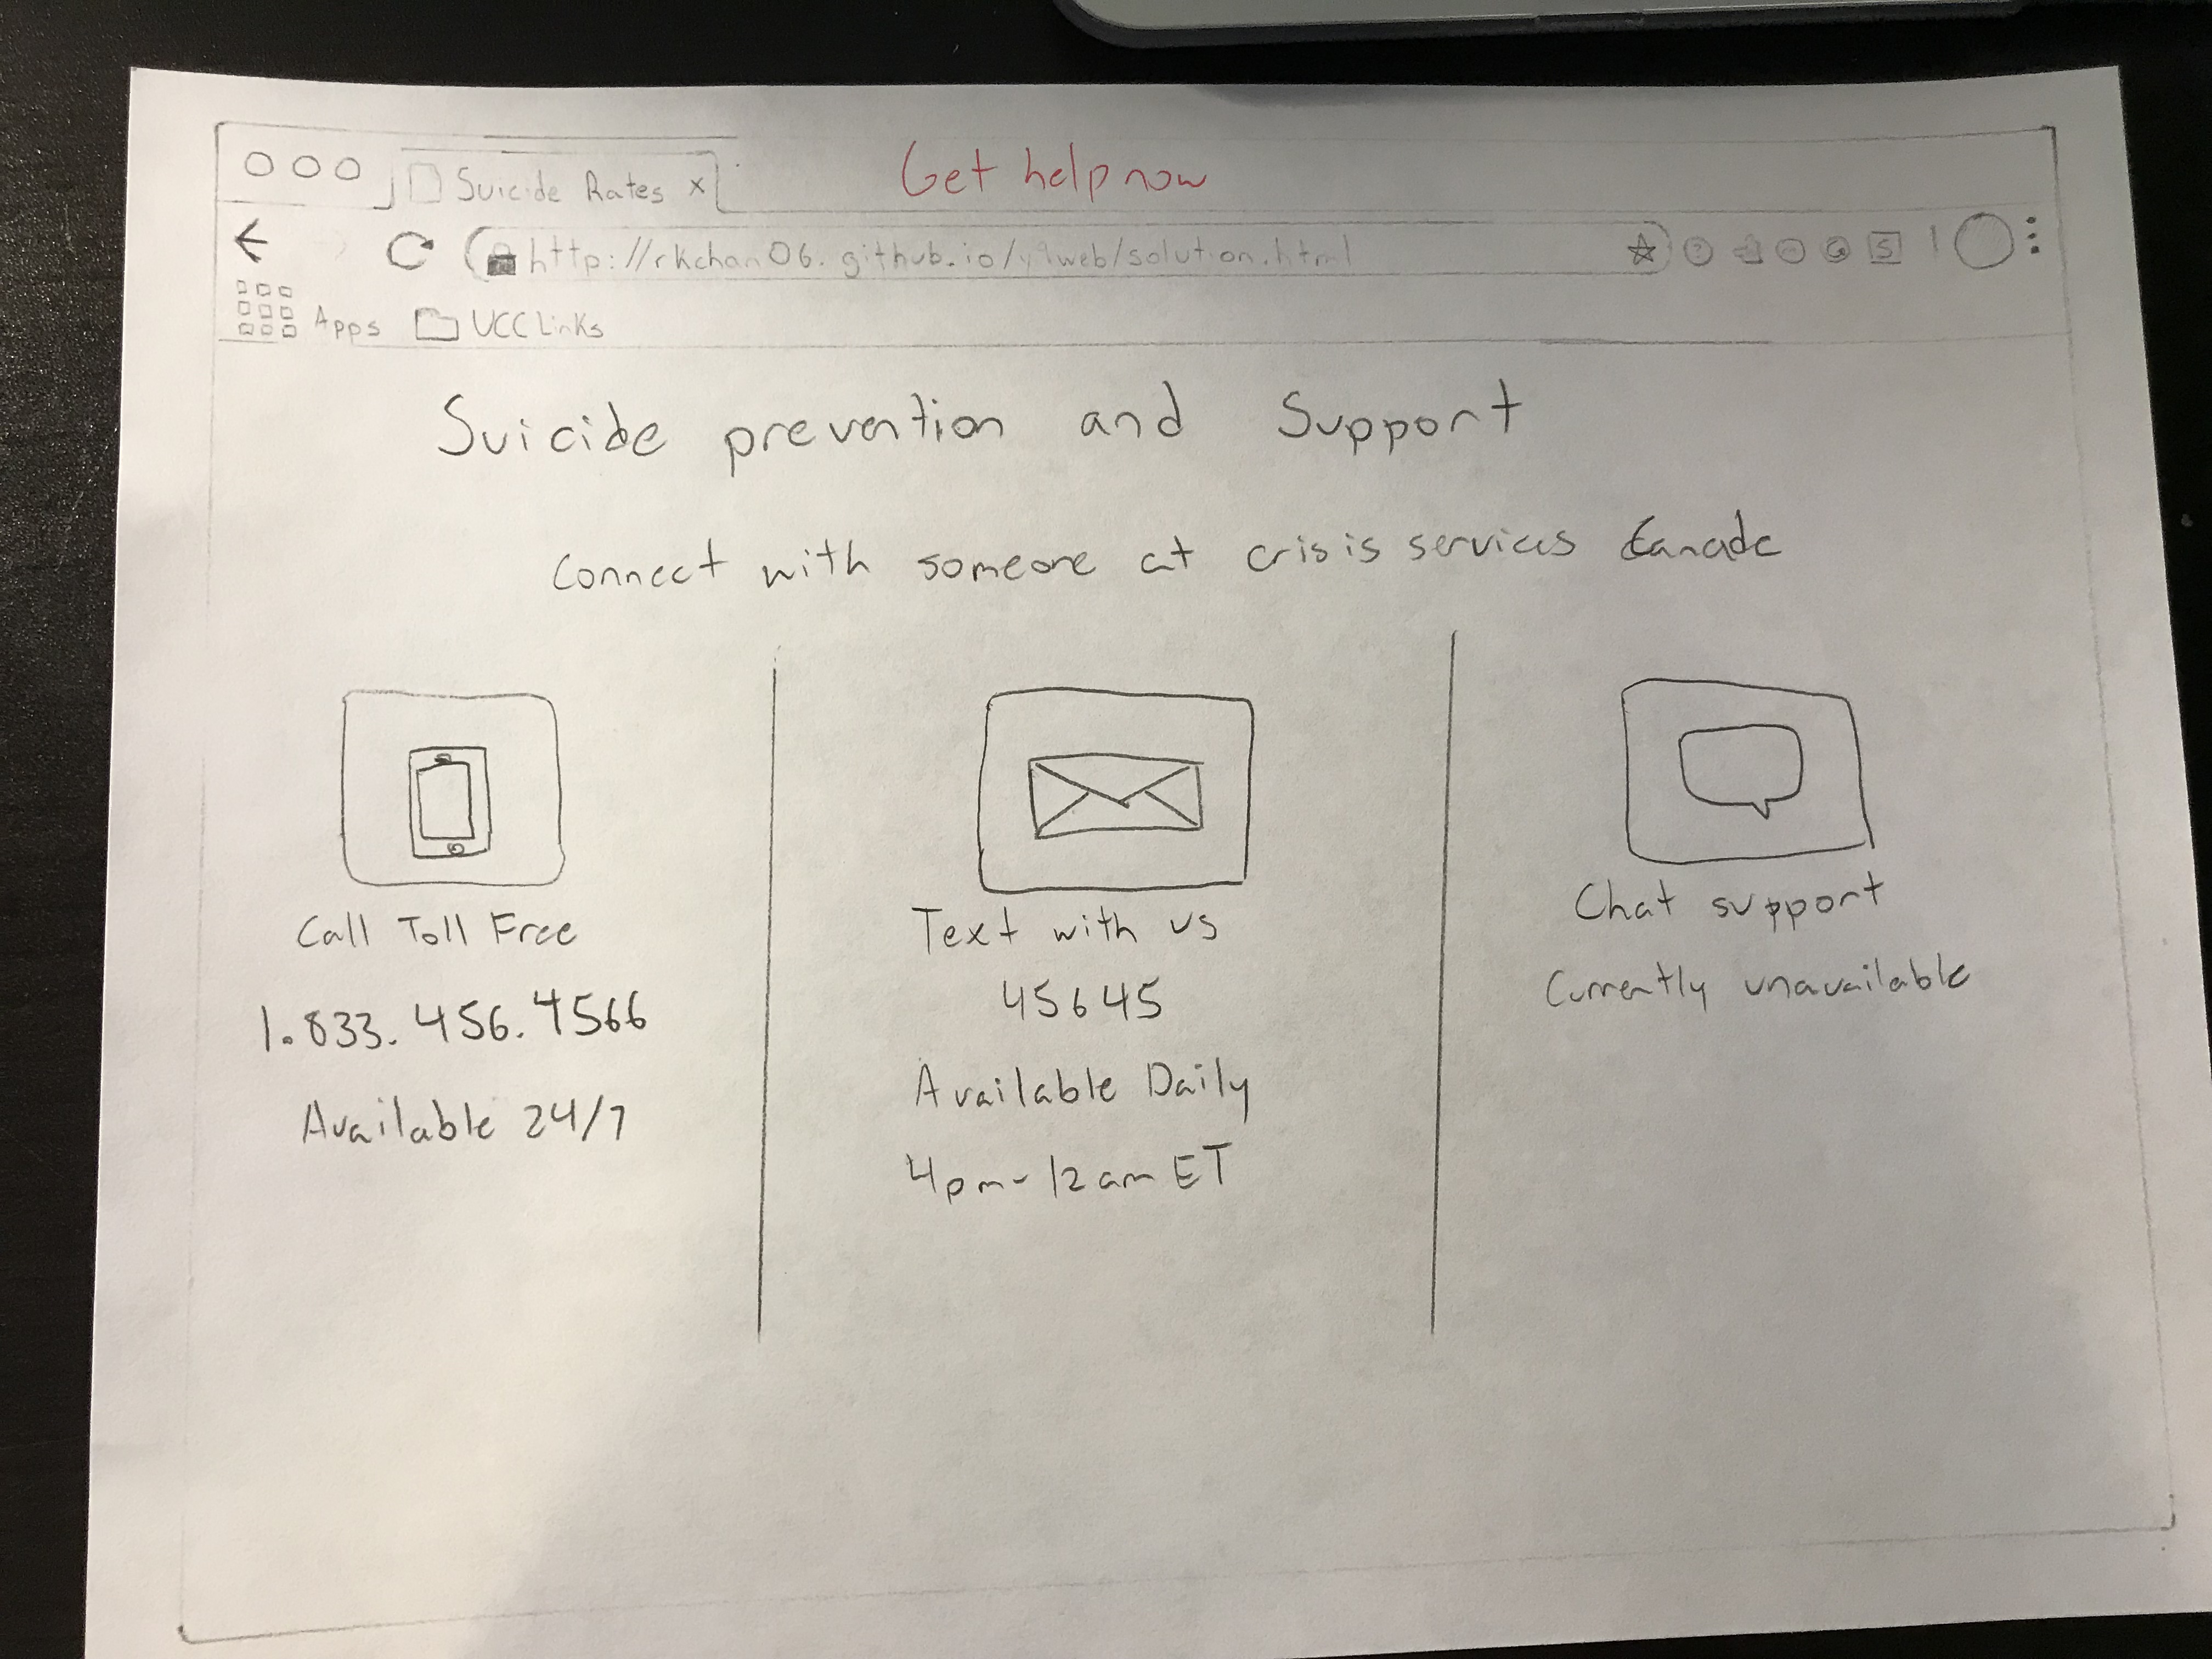 Get help now
Suicide Rates x
http://rkchan06.github.io/y9web/solution.html
S
Apps UCC Links
Suicide prevention and Support
Connect with someone at crisis services Canada
Call Toll Free
1.833.456.4566
Available 24/7
Text with us
45645
Available Daily
4pm-12am ET
Chat support
Currently unavailable